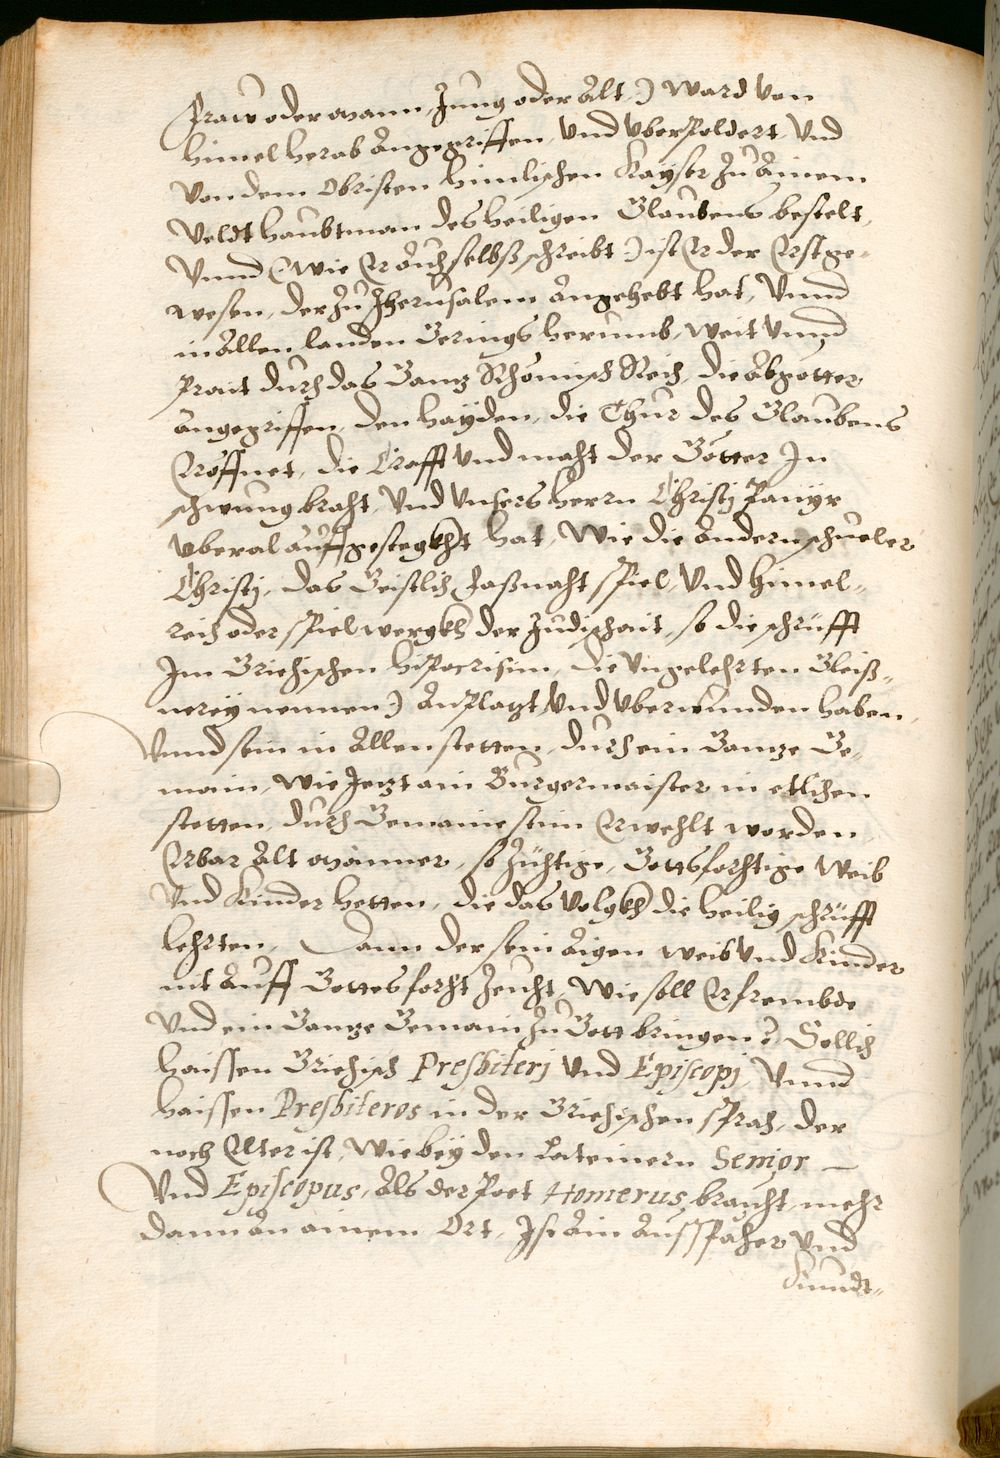 Fraw oder Mann, Jung oder Alt :) ward von
himel herab Angegriffen, Vnd vberpoldert, Vnd
Von dem Obristen himlischen Kayser Zu Ainem
Veldthaubtman des heiligen Glaubens bestelt,
Vnnd (: wie Er Auch selbß schreibt :) ist Er der Erst ge-
wesen, der Zu Jherusalem Angehebt hat, Vnnd
in Allen landen Gerings herumb, weit Vnnd
Prait durch das Gantz Rhömisch Reich, die Abgötter
Angegriffen, den hayden, die Thür des Glaubens
Eröffnet, die Crafft Vnd macht der Götter In
schwung bracht, Vnd Vnsers herrn Christj Panijr
Vberal auffgestegkht hat, Wie die Andern schueler
Christj, das Geistlich Faßnacht spiel, Vnd himel-
reich oder spielwergkh der Judischait, so die schrüfft
Im Griechischen hipocrisim, die Vngelehrten Gleiß-
nerey nennen :) Anplatzt, Vnd Vberwunden haben,
Vnnd sein in Allen stetten, durch ein Gantze Ge-
main, wie Jetzt ain Burgermaister in etlichen
stetten, durch Gemaine stim Erwehlt worden
Erbar Alt Männer, so Züchtige, Gottsforchtige Weib
Vnd Kinder hetten, die das Volgkh die heilig schrüfft
lehrten, Dann der sein Aigen weib Vnd Kinder
nit Auff Gottesforcht Zeucht, Wie soll Er frembde
Vnd ein Gantze Gemain Zu Gott bringen? Sollich
haissen Griechisch Presbiterj Vnd Episcopj, Vnnd
haissen Presbiteros in der Griechischen sprach, der
noch Elter ist, Wie bey den Lateinern Senior –
Vnd Episcopus, Als der Poet Homerus braucht, mehr
dann An ainem Ort, Ist Ain Ausspäher Vnd
Kundt-